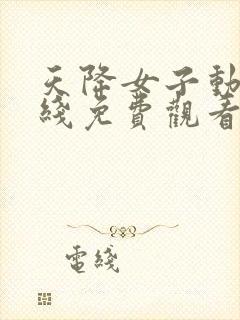 天降女子動
綫免費觀看
電綫